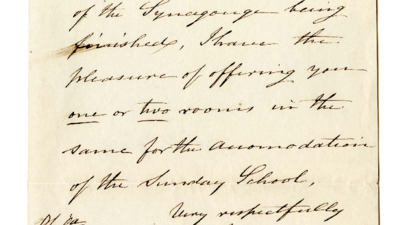 of the Synagouge being
finished, I have the
pleasure of offering you
one or two rooms in the
same for the accomodation
of the Sunday School,
Very respectfully